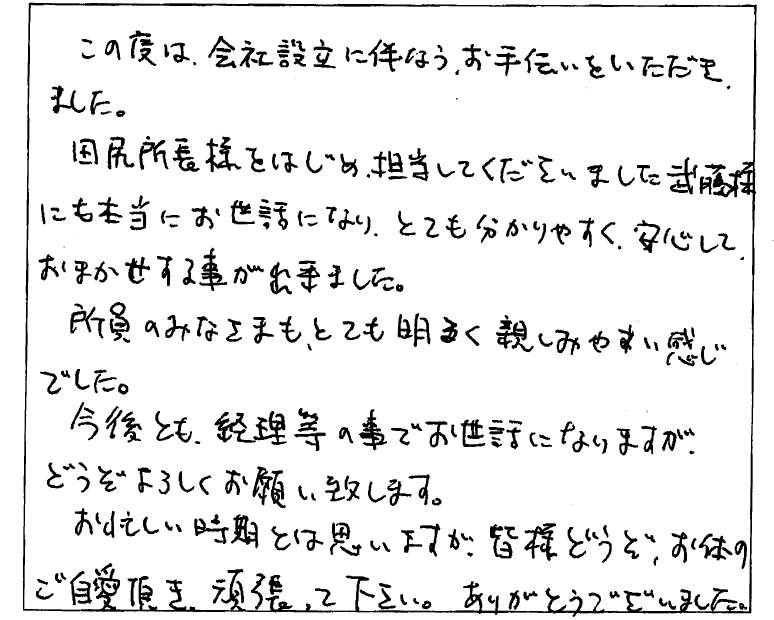 この度は、会社設立に伴なう、お手伝いをいただき、
ました。
田尻所長様をはじめ、担当してくださいました武藤様
にも本当にお世話になり、とても分かりやすく、安心して、
おまかせする事が出来ました。
所員のみなさまも、とても明るく親しみやすい感じ
でした。
今後とも、経理等の事でお世話になりますが、
どうぞよろしくお願い致します。
お忙しい時期とは思いますが、皆様どうぞ、お体の
ご自愛頂き、頑張って下さい。ありがとうございました。